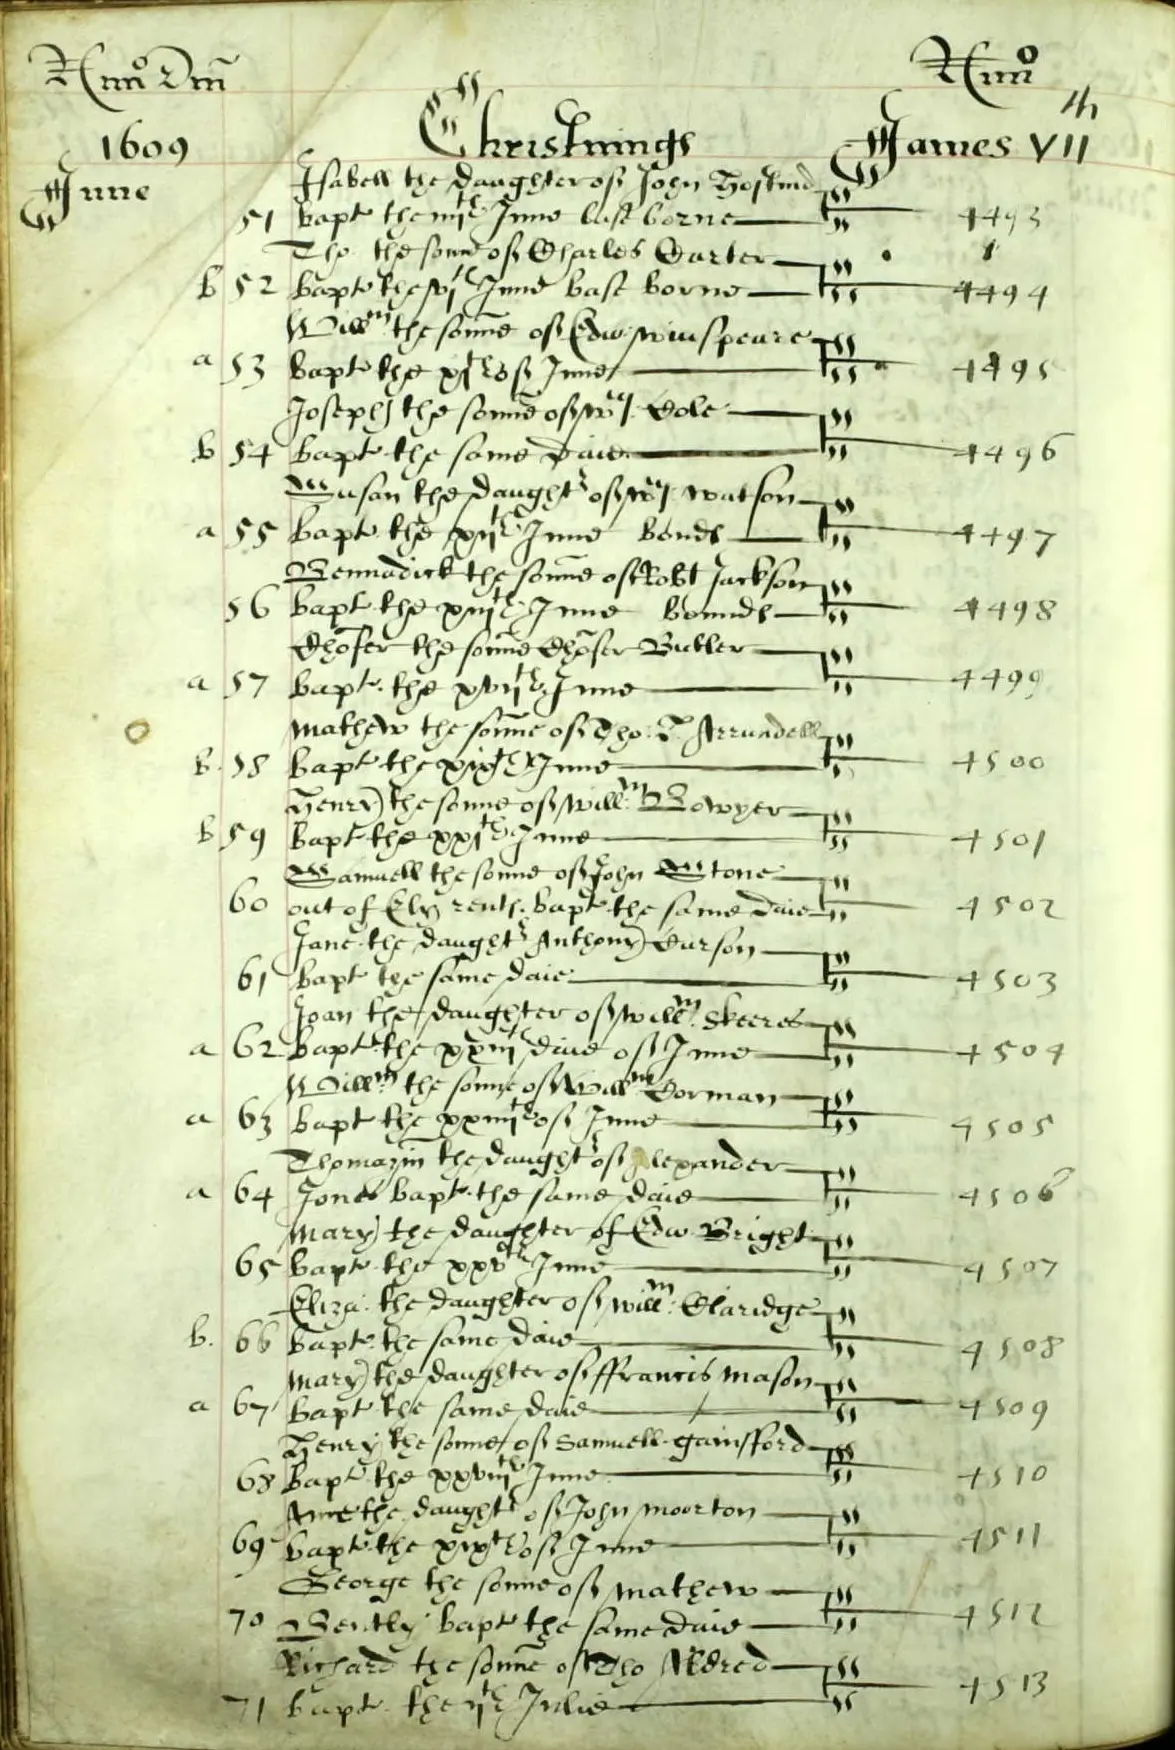 Anno Dm̄ Anno
1609 Christnings James VII th
June Isabell the daughter of John
51 bapt the iiijth June base borne 4493
Tho: the sonne of Charles Carter
b 52 bapt the vjth June base borne 4494
Willm the sonne of Edw: winspeare
a 53 bapt the xjth of June 4495
Joseph the sonne of wm Cole
b 54 bapt the same daie 4496
Susan the daughtr of wm watson
a 55 bapt the xijth June 4497
Bennadick the sonne of Robt Jackson
56 bapt the xiijth June 4498
Chōfer the sonne Chōfer Butler
a 57 bapt the xviijth June 4499
Mathew the sonne of Tho: T. Arrundell
b. 58 bapt the xixth June 4500
Henry the sonne of willm Bowyer
b 59 bapt the xxjth June 4501
Samuell the sonne of John Stone
60 out of Ely rents. bapt the same daie 4502
Jane the daughtr Anthony Curson
61 bapt the same daie 4503
Joan the daughter of willm: Skeeres
a 62 bapt the xxiijth daie of June 4504
Willm the sonne of Willm Dorman
a 63 bapt the xxiiijth of June 4505
Thomazin the daughtr of Alexander
a 64 Jones bapt the same daie 4506
Mary the daughter of Edw Bright
65 bapt the xxvth June 4507
Eliza: the daughter of willm: Claridge
b. 66 bapt the same daie 4508
Mary the daughter of ffrancis Mason
a 67 bapt the same daie 4509
Henry the sonne of Samuell gainsfford
68 bapt the xxviijth June 4510
Anne the daughtr of John Moorton
69 bapt the xxixth of June 4511
George the sonne of Mathew
70 Bently bapt the same daie 4512
Richard the sonne of Tho Aldred
71 bapt the ijth Julie 4513